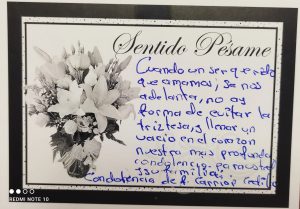 Sentido Pésame
Cuando un ser querido
que amamos, se nos
adelanta, no ay
forma de evitar la
triztesa, y llenar un
vacio en el corazon
nuestra mas profunda
condolencia para usted
y su familia:
Condolencia de
REDMI NOTE 10